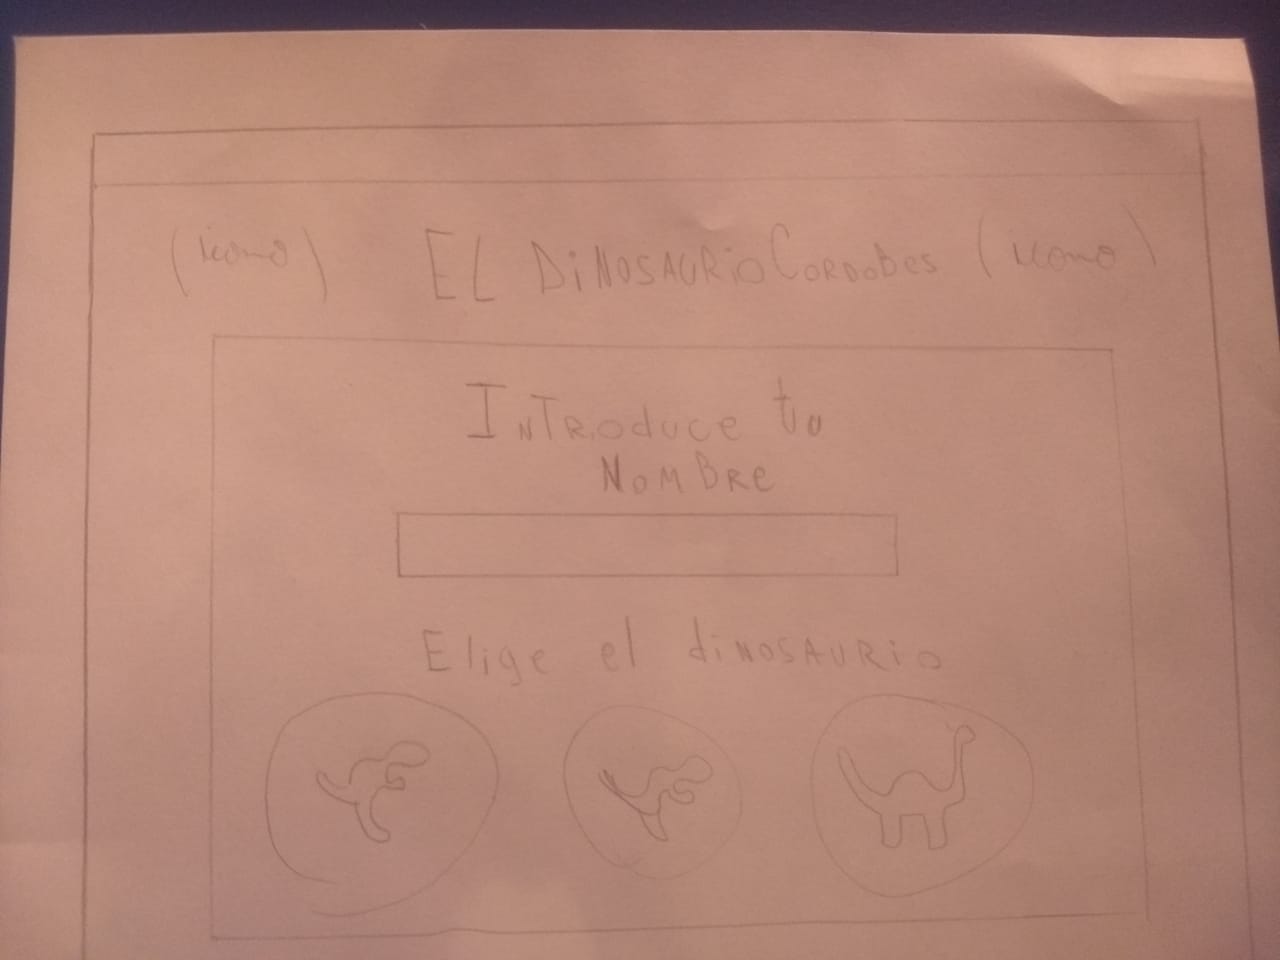 (icono) EL DiNOSAURio CORDOBES (icono)
INTRoduce tu
NOMBRe
Elige el diNOSAURio